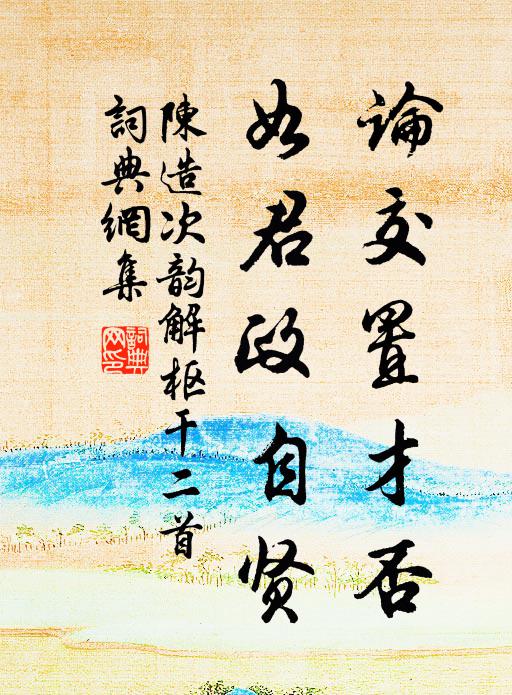 論交置才否
如君政自贤
陳造次韵解枢干二首
詞典網集
詞典網印